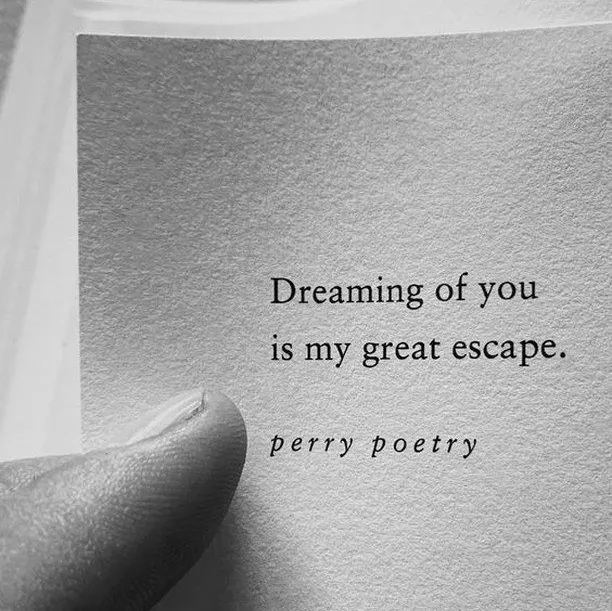 Dreaming of you
is my great escape.
perry poetry